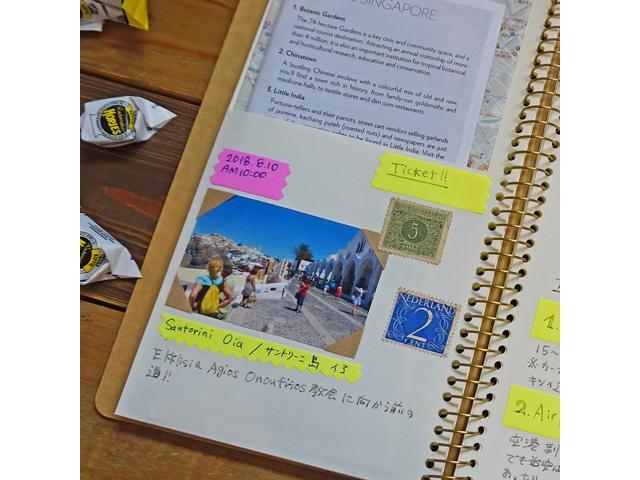 SINGAPORE
1. Botanic Gardens
The 74-hectare Gardens is a key civic and community space, and a
national tourist destination. Attracting an annual visitorship of more
than 4 million, it is also an important institution for tropical botanical
and horticultural research, education and conservation.
2. Chinatown
A bustling Chinese enclave with a colourful mix of old and new,
you'll find a town rich in history, from family-run goldsmiths and
medicine halls, to textile stores and dim sum restaurants.
3. Little India
Fortune-tellers and their parrots, street cart vendors selling garlands
of jasmine, kachang puteh (roasted nuts) and newspapers are just
to be found in Little India. Visit the
2018.6.10
AM10:00
Ticket!!
5
NEDERLAND
2
CENT
Santorini Oia / サントリーニ島 イア
Ekklisia Agios Onoufrios 教会に向かう前の
道!!
1.
15～
2. Air
空港
KOPIES